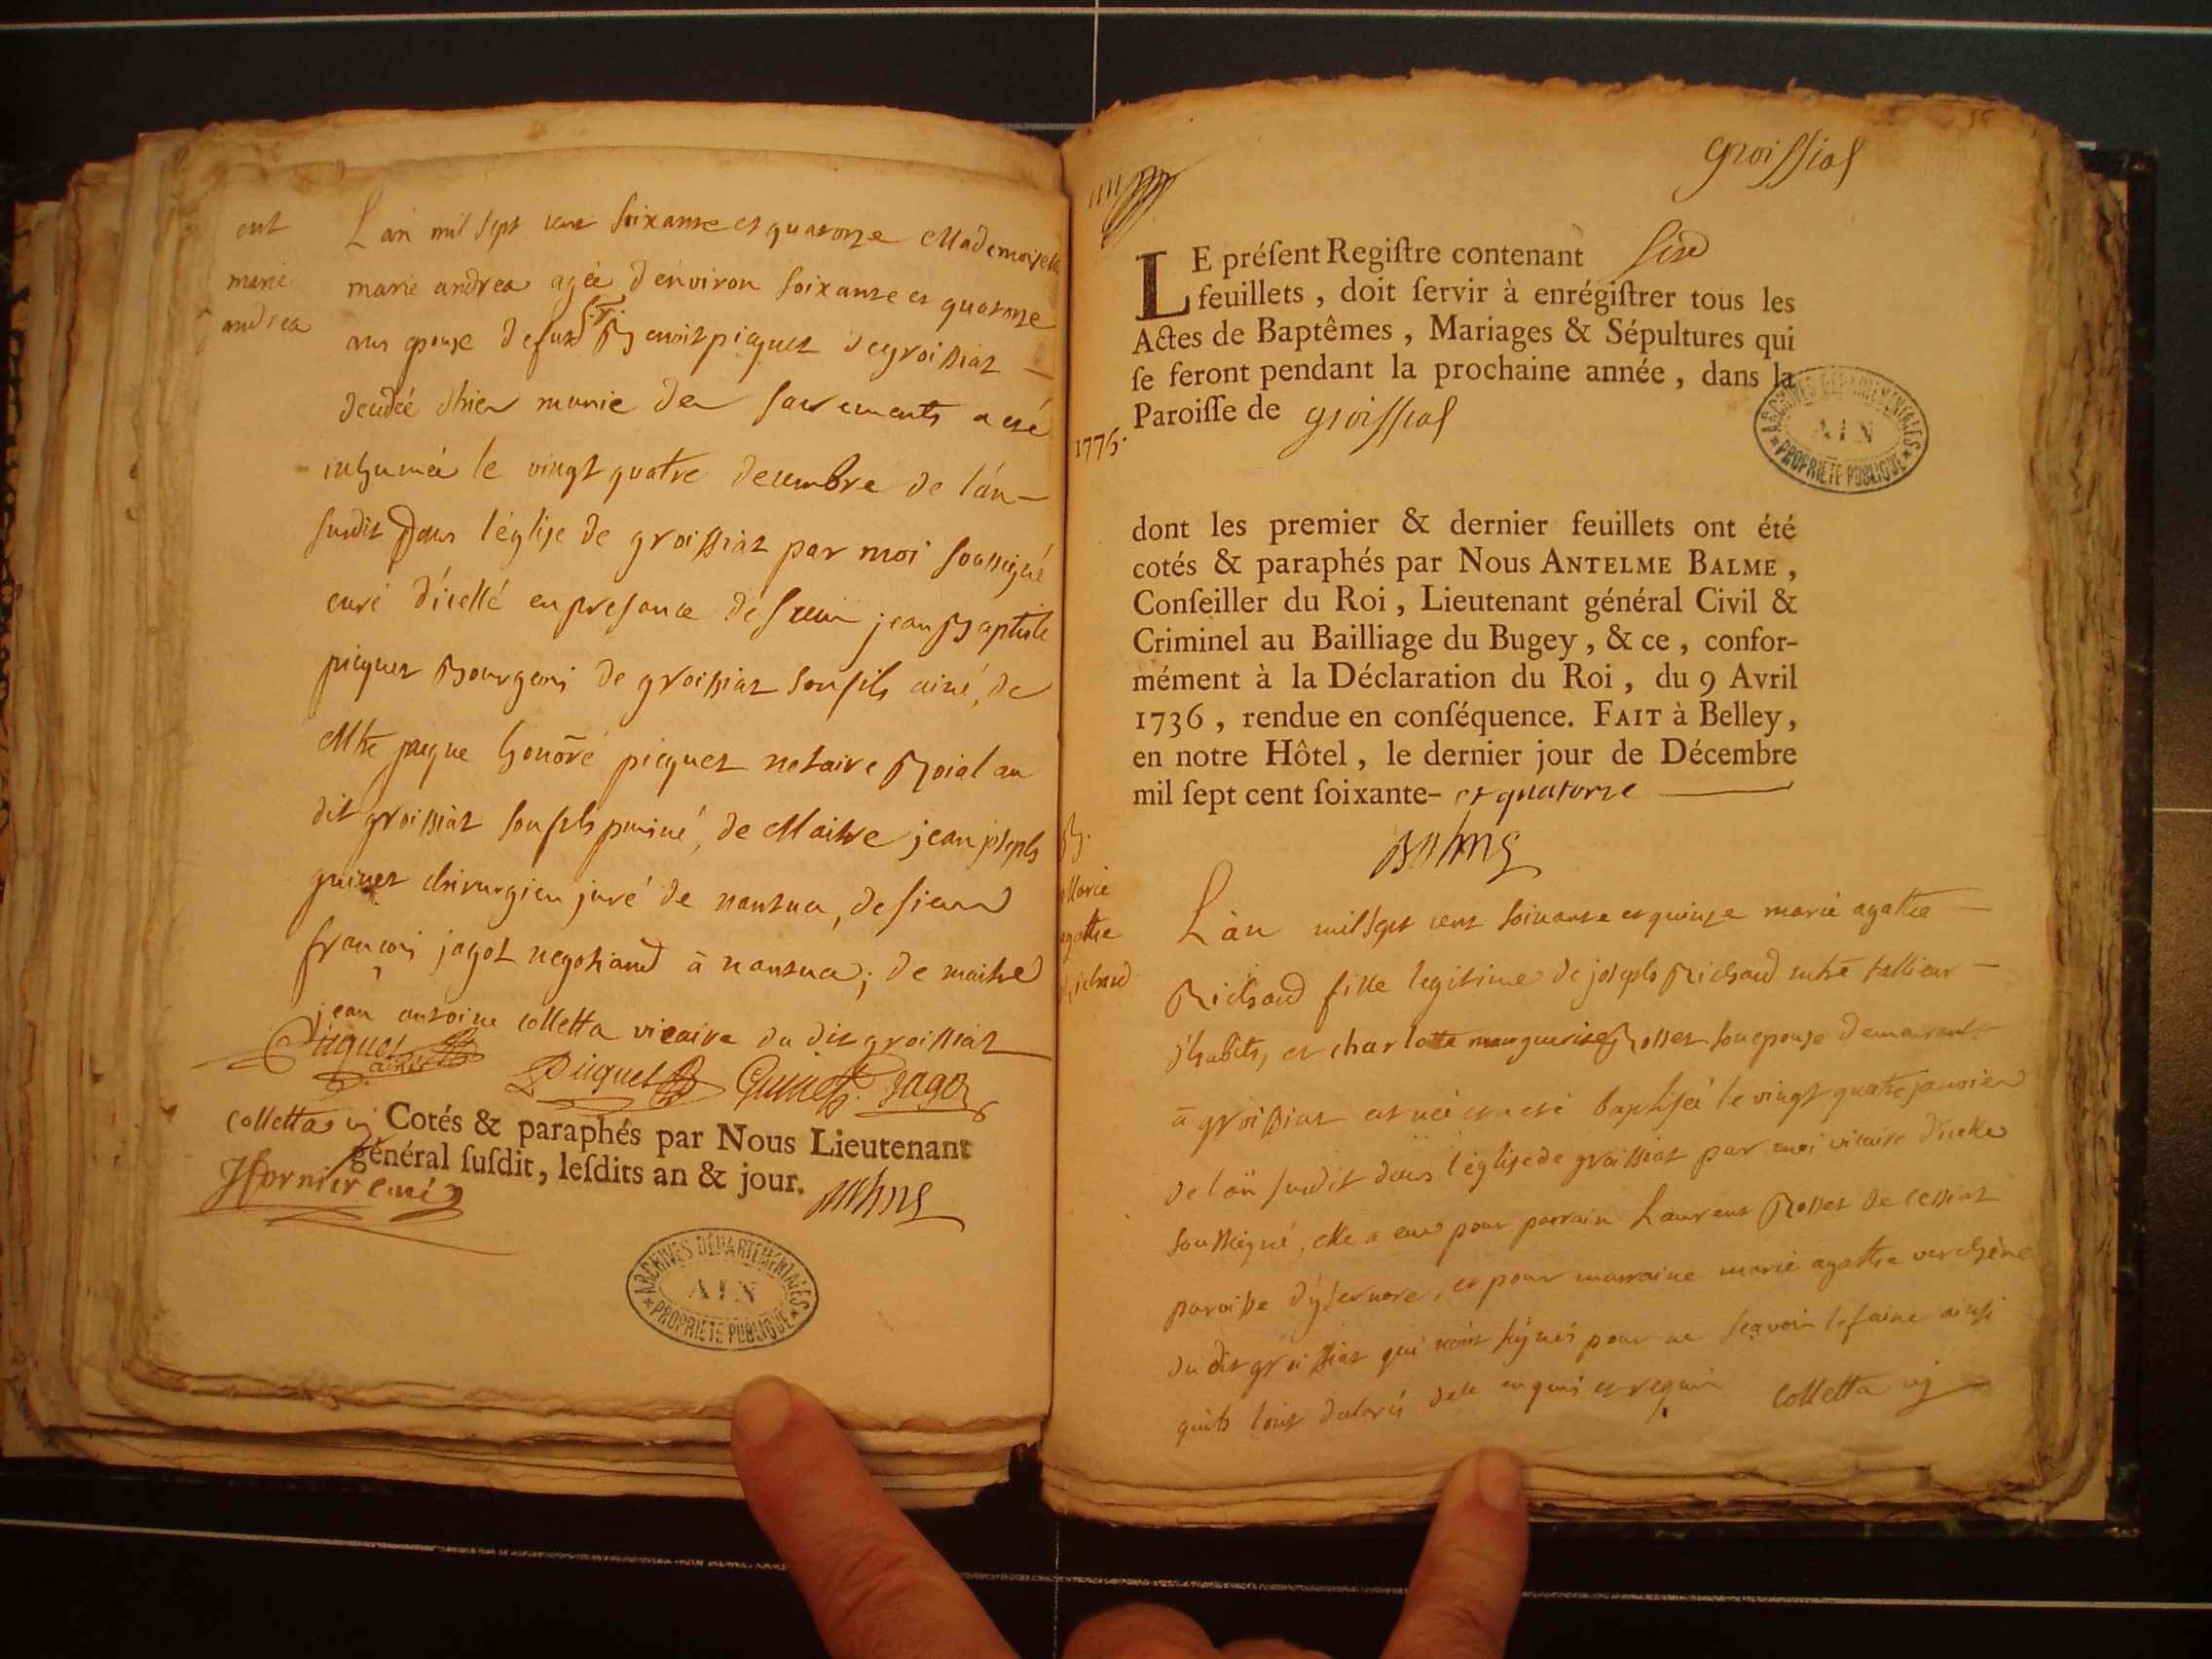 ent
marie
andrea
L'an mil sept cent soixante et quatorze Mademoiselle
marie andrea agée d'environ soixante et quatorze
ans epouse de feu Sr. Benoit picquet de groissiat
decedée d'hier munie des sacrements a eté
inhumée le vingt quatre decembre de l'an
susdit dans l'église de groissiat par moi soussigné
curé d'icelle en presance de sieur jean Baptiste
picquet Bourgeois de groissiat son fils ainé, de
Mtre jacque honoré picquet notaire Roial au
dit groissiat son fils puiné, de Maitre jean joseph
guinet chirurgien juré de nantua, de sieur
françois jagot negotiand à nantua; de maitre
jean antoine colletta vicaire du dit groissiat
Picquet ainé Picquet Guinet. Jagot
colletta vic
Cotés & paraphés par Nous Lieutenant
général susdit, lesdits an & jour.
Balme
Hornier curé
ARCHIVES DÉPARTEMENTALES
AIN
* PROPRIETE PUBLIQUE *
groissiat
LE présent Registre contenant six
feuillets, doit servir à enrégistrer tous les
Actes de Baptêmes, Mariages & Sépultures qui
se feront pendant la prochaine année, dans la
Paroisse de groissiat
1775.
ARCHIVES DÉPARTEMENTALES
AIN
* PROPRIETE PUBLIQUE *
dont les premier & dernier feuillets ont été
cotés & paraphés par Nous ANTELME BALME,
Conseiller du Roi, Lieutenant général Civil &
Criminel au Bailliage du Bugey, & ce, confor-
mément à la Déclaration du Roi, du 9 Avril
1736, rendue en conséquence. FAIT à Belley,
en notre Hôtel, le dernier jour de Décembre
mil sept cent soixante- et quatorze
Balme
B.
Marie
agathe
Richard
L'an mil sept cent soixante et quinze marie agathe
Richard fille legitime de joseph Richard mtre tallieur
d'habits, et charlotte marguerite Rosset son epouse demeurant
à groissiat est née et a eté baptisée le vingt quatre janvier
de l'an susdit dans l'église de groissiat par moi vicaire d'icelle
soussigné, elle a eu pour parrain Laurent Rosset de cessiat
paroisse d'ysernore, et pour marraine marie agathe verchère
du dit groissiat qui n'ont signés pour ne sçavoir le faire ainsi
qu'ils l'ont declarés de ce enquis et requis colletta vic